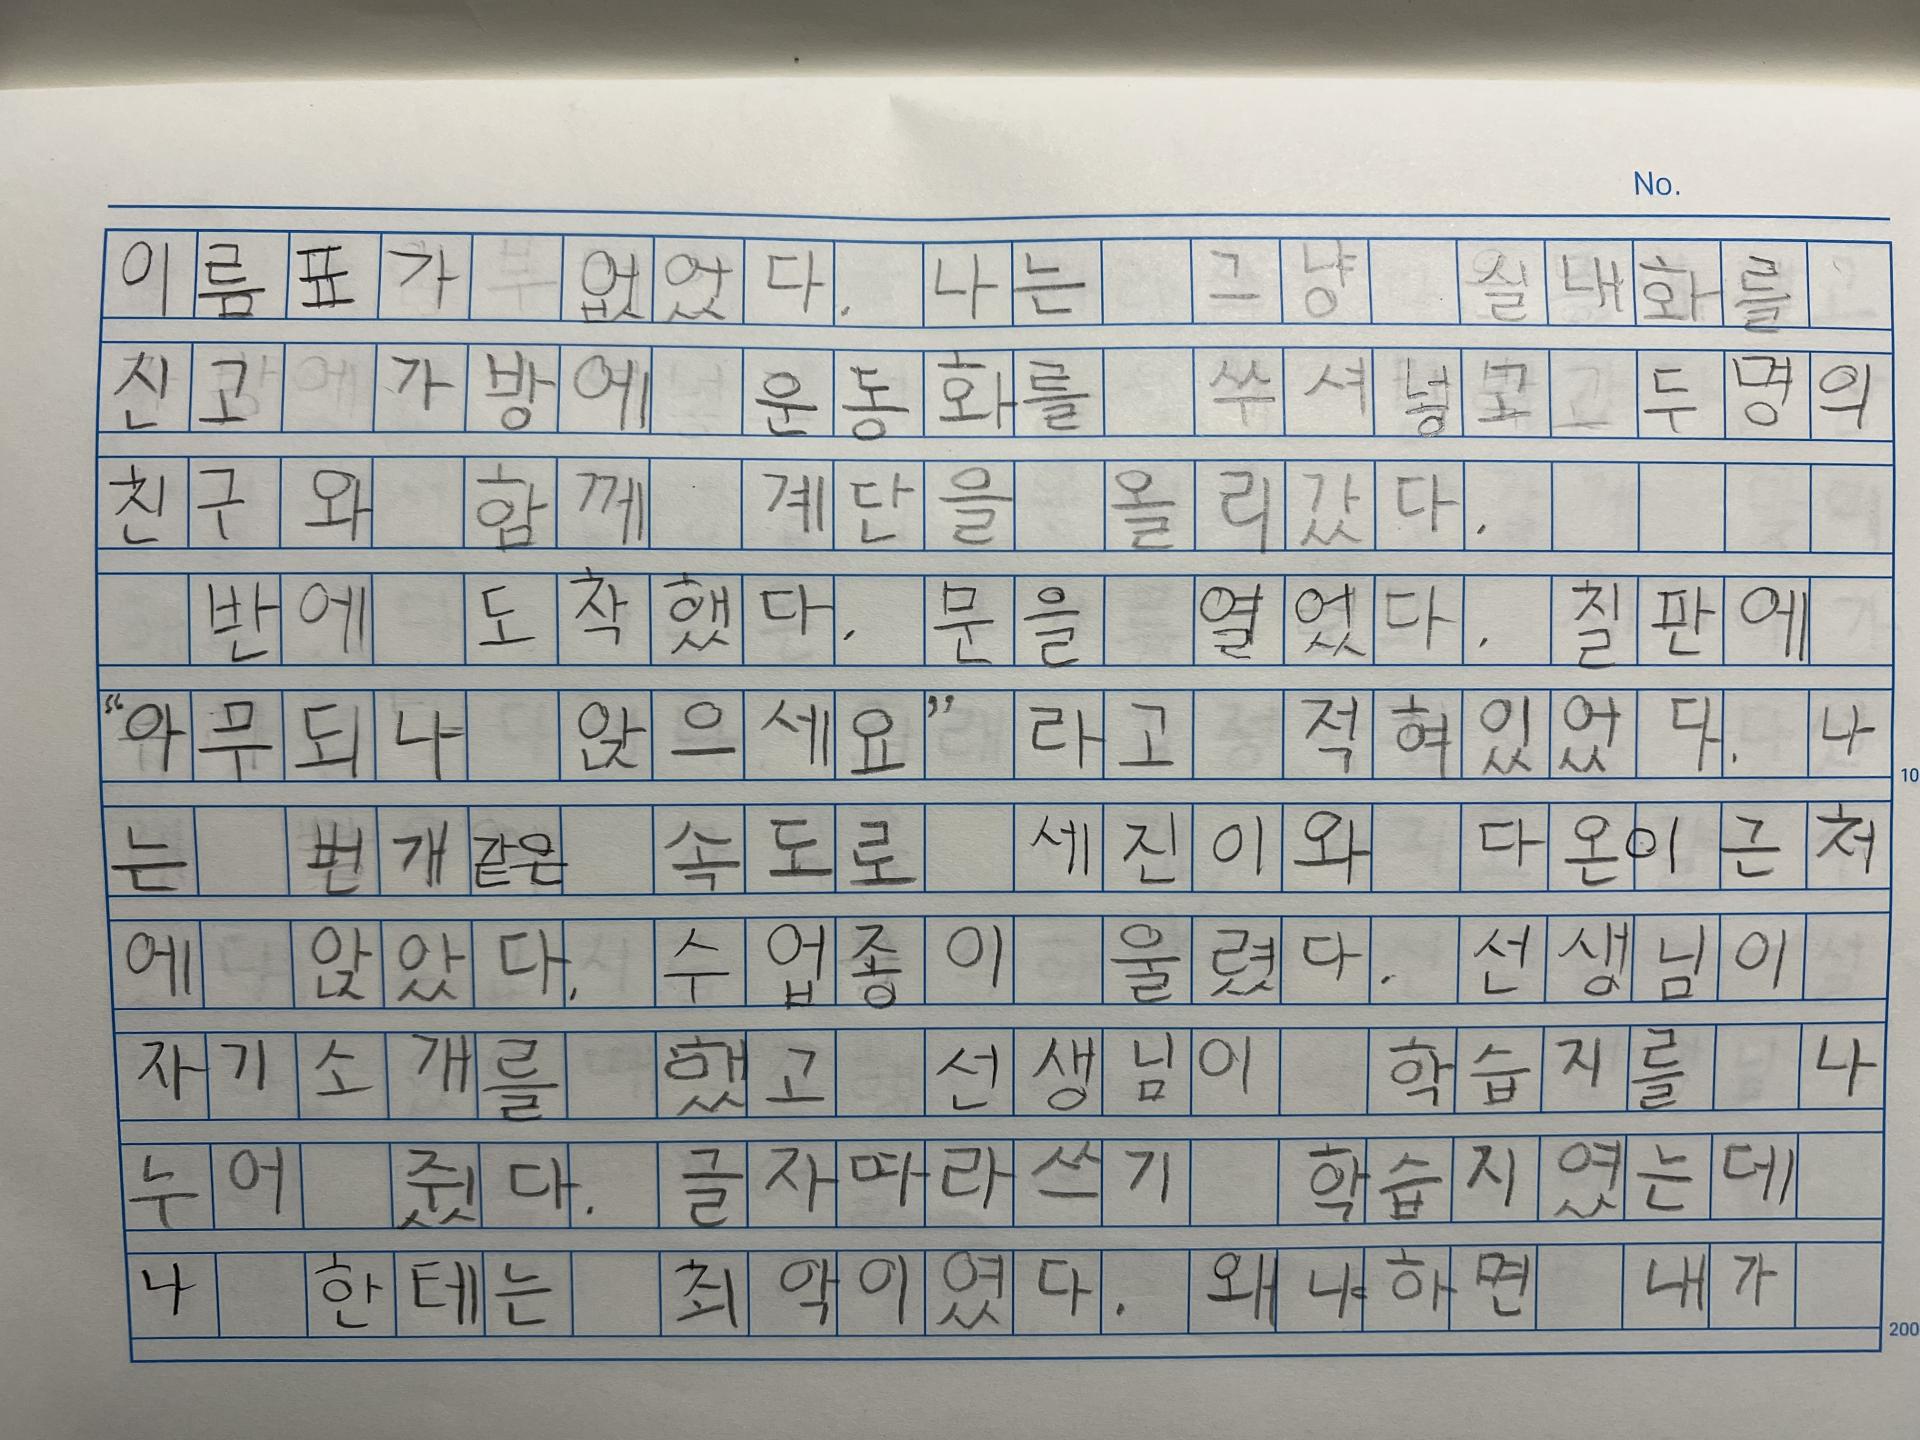 No.
이름표가 없었다. 나는 그냥 실내화를
진고 가방에 운동화를 쑤셔넣고 두명의
친구와 함께 계단을 올리갔다.
반에 도착했다. 문을 열었다. 칠판에
“아무되나 앉으세요” 라고 적혀있었다. 나
는 번개같은 속도로 세진이와 다온이근처
에 앉았다. 수업종이 울렸다. 선생님이
자기소개를 했고 선생님이 학습지를 나
누어 줬다. 글자따라쓰기 학습지였는데
나 한테는 최악이였다. 왜냐하면 내가
10
200